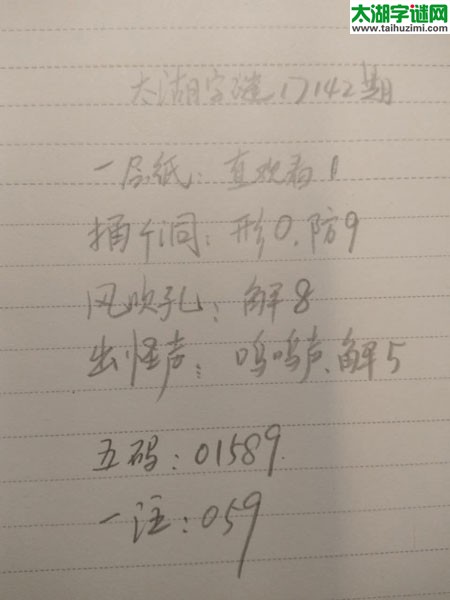 太湖字谜网
www.taihuzimi.com
太湖字谜17142期
一层纸：直观看1
捅个洞：形0.防9
风吹孔：解8
出怪声：呜呜声、解5
五码：01589.
一注：059